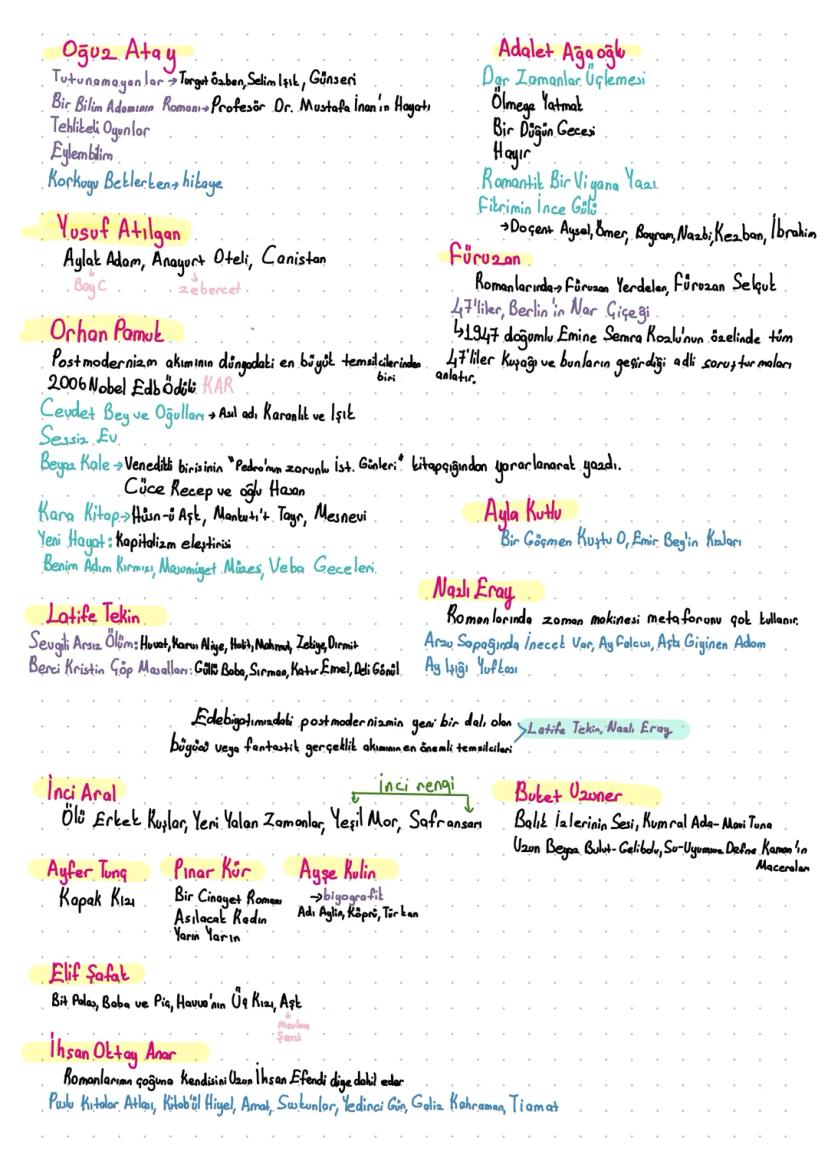 Oğuz Atay
Tutunamayanlar → Turgut Özben, Selim Işık, Günseri
Bir Bilim Adamının Romanı → Profesör Dr. Mustafa İnan'ın Hayatı
Tehlikeli Oyunlar
Eylembilim
Korkuyu Beklerken → hikaye
Adalet Ağaoğlu
Dar Zamanlar Üçlemesi
Ölmeye Yatmak
Bir Düğün Gecesi
Hayır
Romantik Bir Viyana Yazı
Fikrimin İnce Gülü
→ Doçent Aysel, Ömer, Bayram, Nazbi, Kezban, İbrahim
Yusuf Atılgan
Aylak Adam, Anayurt Oteli, Canistan
Bay C
zebercet
Füruzan
Romanlarında → Füruzan Yerdelen, Füruzan Selçuk
47'liler, Berlin'in Nar Çiçeği
↳ 1947 doğumlu Emine Semra Kozlu'nun özelinde tüm
47'liler kuşağı ve bunların geçirdiği adli soruşturmaları
anlatır.
Orhan Pamuk
Postmodernizm akımının dünyadaki en büyük temsilcilerinden
biri
2006 Nobel Edb Ödülü KAR
Cevdet Bey ve Oğulları → Asıl adı Karanlık ve Işık
Sessiz Ev
Beyaz Kale → Venedikli birisinin "Pedro'nun zorunlu İst. Günleri" kitapçığından yararlanarak yazdı.
Cüce Recep ve oğlu Hasan
Kara Kitap → Hüsn-ü Aşk, Mantıku't Tayr, Mesnevi
Yeni Hayat: Kapitalizm eleştirisi
Benim Adım Kırmızı, Masumiyet Müzes, Veba Geceleri.
Ayla Kutlu
Bir Göçmen Kuştu O, Emir Bey'in Kızları
Nazlı Eray
Romanlarında zaman makinesi metaforunu çok kullanır.
Arzu Sapağında İnecek Var, Ay Falcısı, Aşkı Giyinen Adam
Ay Işığı Yuftası
Latife Tekin
Sevgili Arsız Ölüm: Huvat, Karısı Aliye, Halit, Mahmut, Zekiye, Dirmit
Berci Kristin Çöp Masalları: Güllü Baba, Sırman, Katır Emel, Deli Gönül
Edebiyatımızdaki postmodernizmin yeni bir dalı olan
büyücü veya fantastik gerçeklik akımının en önemli temsilcileri
Latife Tekin, Nazlı Eray
İnci Aral
inci rengi
Ölü Erkek Kuşlar, Yeni Yalan Zamanlar, Yeşil Mor, Safransarı
Buket Uzuner
Balık İzlerinin Sesi, Kumral Ada-Mavi Tuna
Uzun Beyaz Bulut-Gelibolu, Su-Uyumsuz Defne Kaman'ın
Maceraları
Ayfer Tunç
Kapak Kızı
Pınar Kür
Bir Cinayet Romanı
Asılacak Kadın
Yarın Yarın
Ayşe Kulin
→ biyografik
Adı Aylin, Köprü, Türkan
Elif Şafak
Bit Palas, Baba ve Piç, Havva'nın Üç Kızı, Aşk
mevlana
Şems
İhsan Oktay Anar
Romanlarının çoğuna kendisini Uzun İhsan Efendi diye dahil eder
Puslu Kıtalar Atlası, Kitab'ül Hiyel, Amat, Suskunlar, Yedinci Gün, Galiz Kahraman, Tiamat